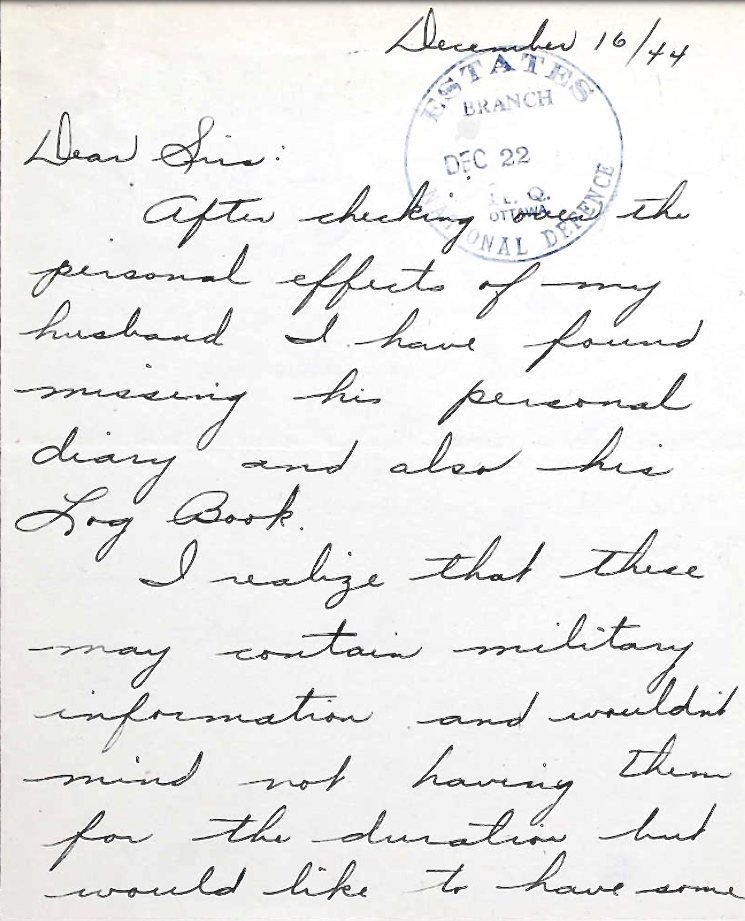 December 16/44
ESTATES
BRANCH
DEC 22
H. Q.
OTTAWA
NATIONAL DEFENCE
Dear Sirs:
After checking over the
personal effects of my
husband I have found
missing his personal
diary and also his
Log Book.
I realize that these
may contain military
information and wouldn't
mind not having them
for the duration but
would like to have some